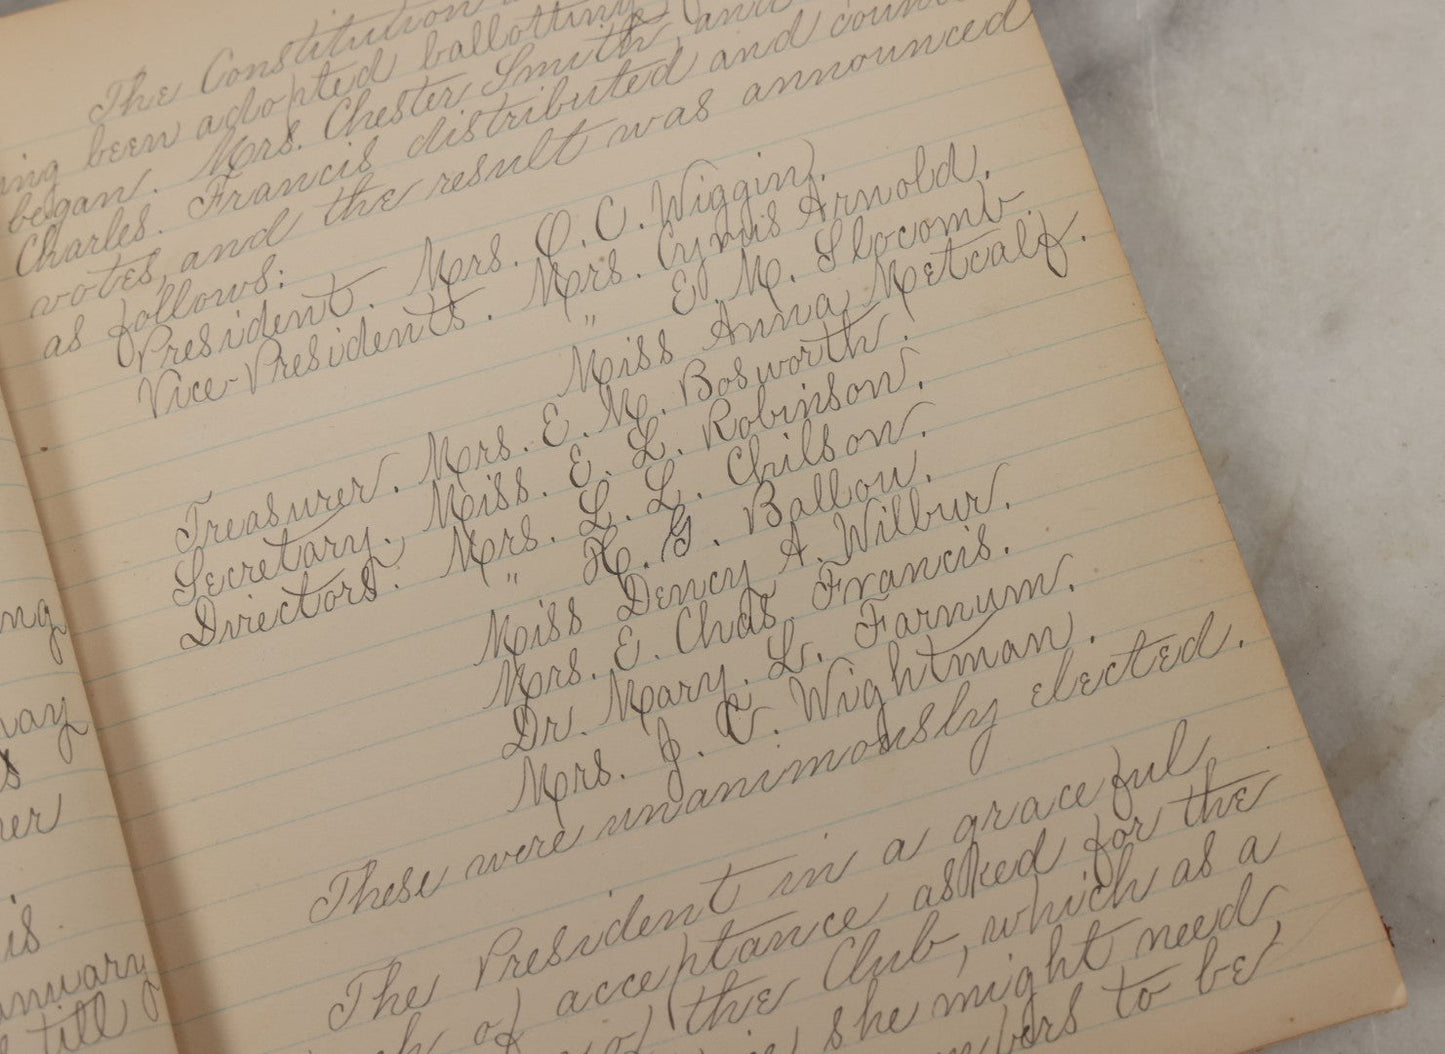 The Constitution
ing been adopted ballotting
began. Mrs. Chester Smith, and
Charles. Francis distributed and
votes, and the result was announced
as follows:
President. Mrs. O. C. Wiggin.
Vice-Presidents. Mrs. Cyrus Arnold.
" E. M. Slocomb
Miss Anna Metcalf.
Treasurer. Mrs. E. M. Bosworth.
Secretary. Miss. E. L. Robinson.
Directors. Mrs. L. L. Chilson.
" H. G. Ballou.
Miss Dency A. Wilbur.
Mrs. E. Chas Francis.
Dr. Mary. L. Farnum.
Mrs. J. C. Wightman.
These were unanimously elected.
The President in a graceful
of acceptance asked for the
of the Club, which as a
she might need,
to be
ng
nay
er
is
anuary
till